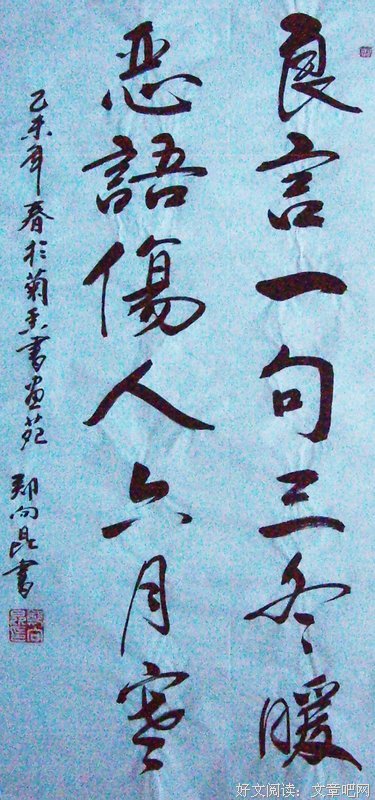 良言一句三冬暖
恶語傷人六月寒
乙未年春於菊香書画苑 郑向昆書
好文阅读：文章吧网